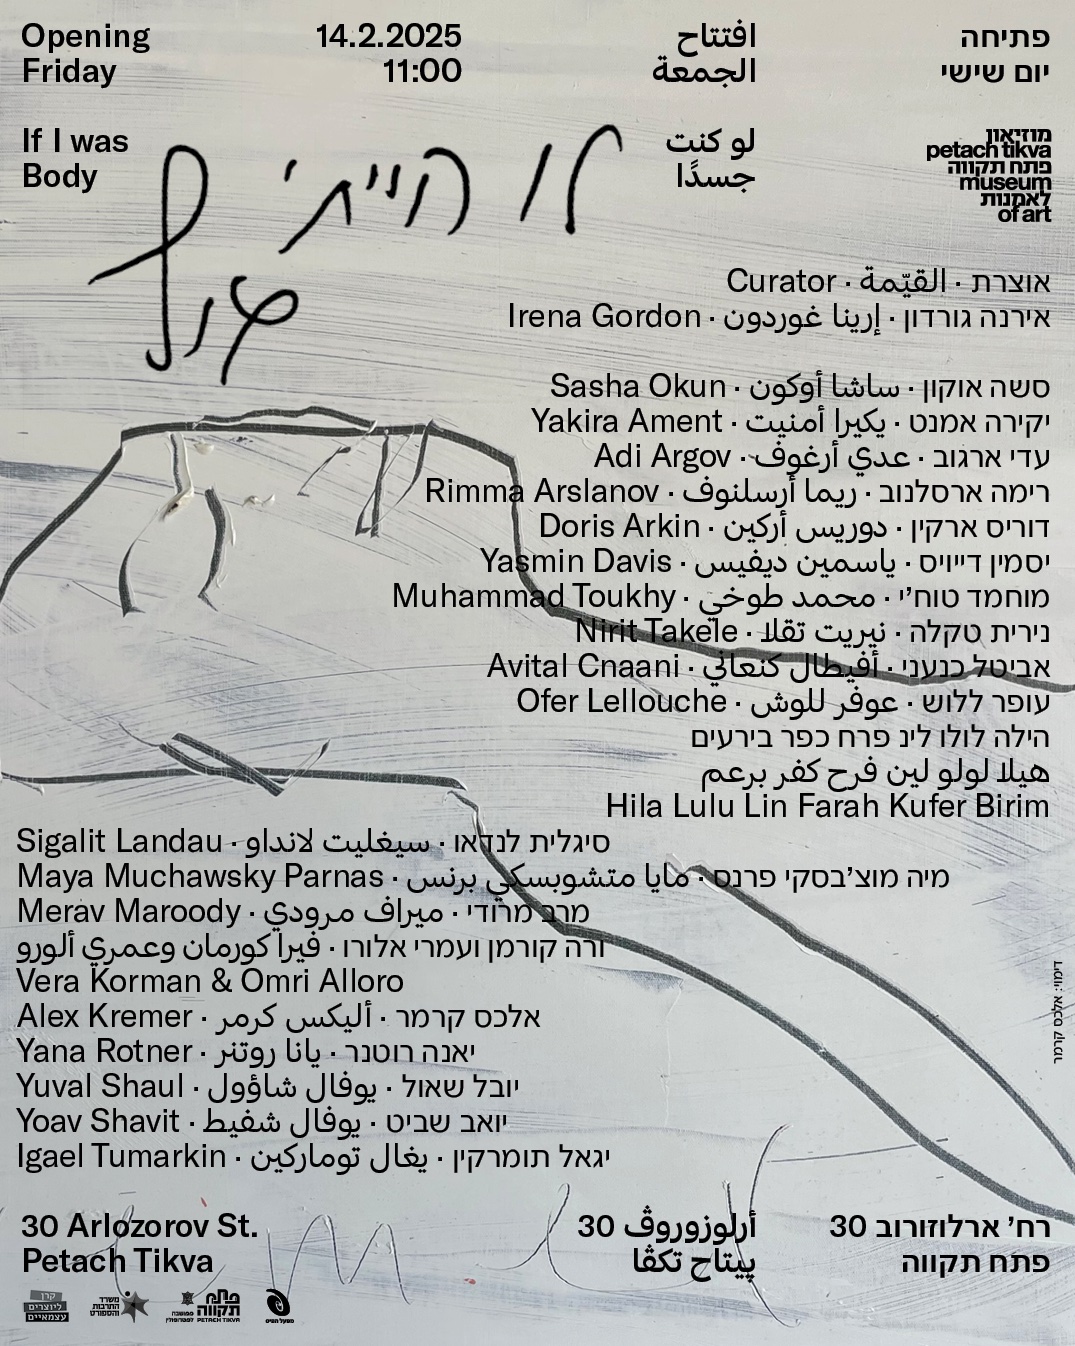 Opening 14.2.2025 افتتاح פתיחה
Friday 11:00 الجمعة יום שישי
If I was لو كنت
Body جسدًا
לו הייתי
גוף
מוזיאון
petach tikva
פתח תקווה
museum
לאמנות
of art
Curator · القيّمة · אוצרת
Irena Gordon · إرينا غوردون · אירנה גורדון
Sasha Okun · ساشا أوكون · סשה אוקון
Yakira Ament · يكيرا أمنيت · יקירה אמנט
Adi Argov · عدي أرغوف · עדי ארגוב
Rimma Arslanov · ريما أرسلنوف · רימה ארסלנוב
Doris Arkin · دوريس أركين · דוריס ארקין
Yasmin Davis · ياسمين ديفيس · יסמין דייויס
Muhammad Toukhy · محمد طوخي · מוחמד טוח'י
Nirit Takele · نيريت تقلا · נירית טקלה
Avital Cnaani · أفيطال كنعاني · אביטל כנעני
Ofer Lellouche · عوفر للوش · עופר ללוש
הילה לולו לין פרח כפר בירעים
هيلا لولو لين فرح كفر برعم
Hila Lulu Lin Farah Kufer Birim
Sigalit Landau · سيغليت لانداو · סיגלית לנדאו
Maya Muchawsky Parnas · مايا متشوبسكي برنس · מיה מוצ'בסקי פרנס
Merav Maroody · ميراف مرودي · מרב מרודי
ורה קורמן ועמרי אלורו · فيرا كورمان وعمري ألورو
Vera Korman & Omri Alloro
Alex Kremer · أليكس كرمر · אלכס קרמר
Yana Rotner · يانا روتنر · יאנה רוטנר
Yuval Shaul · يوفال شاؤول · יובל שאול
Yoav Shavit · يوفال شفيط · יואב שביט
Igael Tumarkin · يغال توماركين · יגאל תומרקין
דימוי: אלכס קרמר
30 Arlozorov St. أرلوزوروڤ 30 רח' ארלוזורוב 30
Petach Tikva پيتاح تكڤا פתח תקווה
קרן
ליוצרים
עצמאיים
משרד
התרבות
והספורט
פתח
תקווה
PETACH TIKVA
ממושבה
למטרופולין
מפעל הפיס